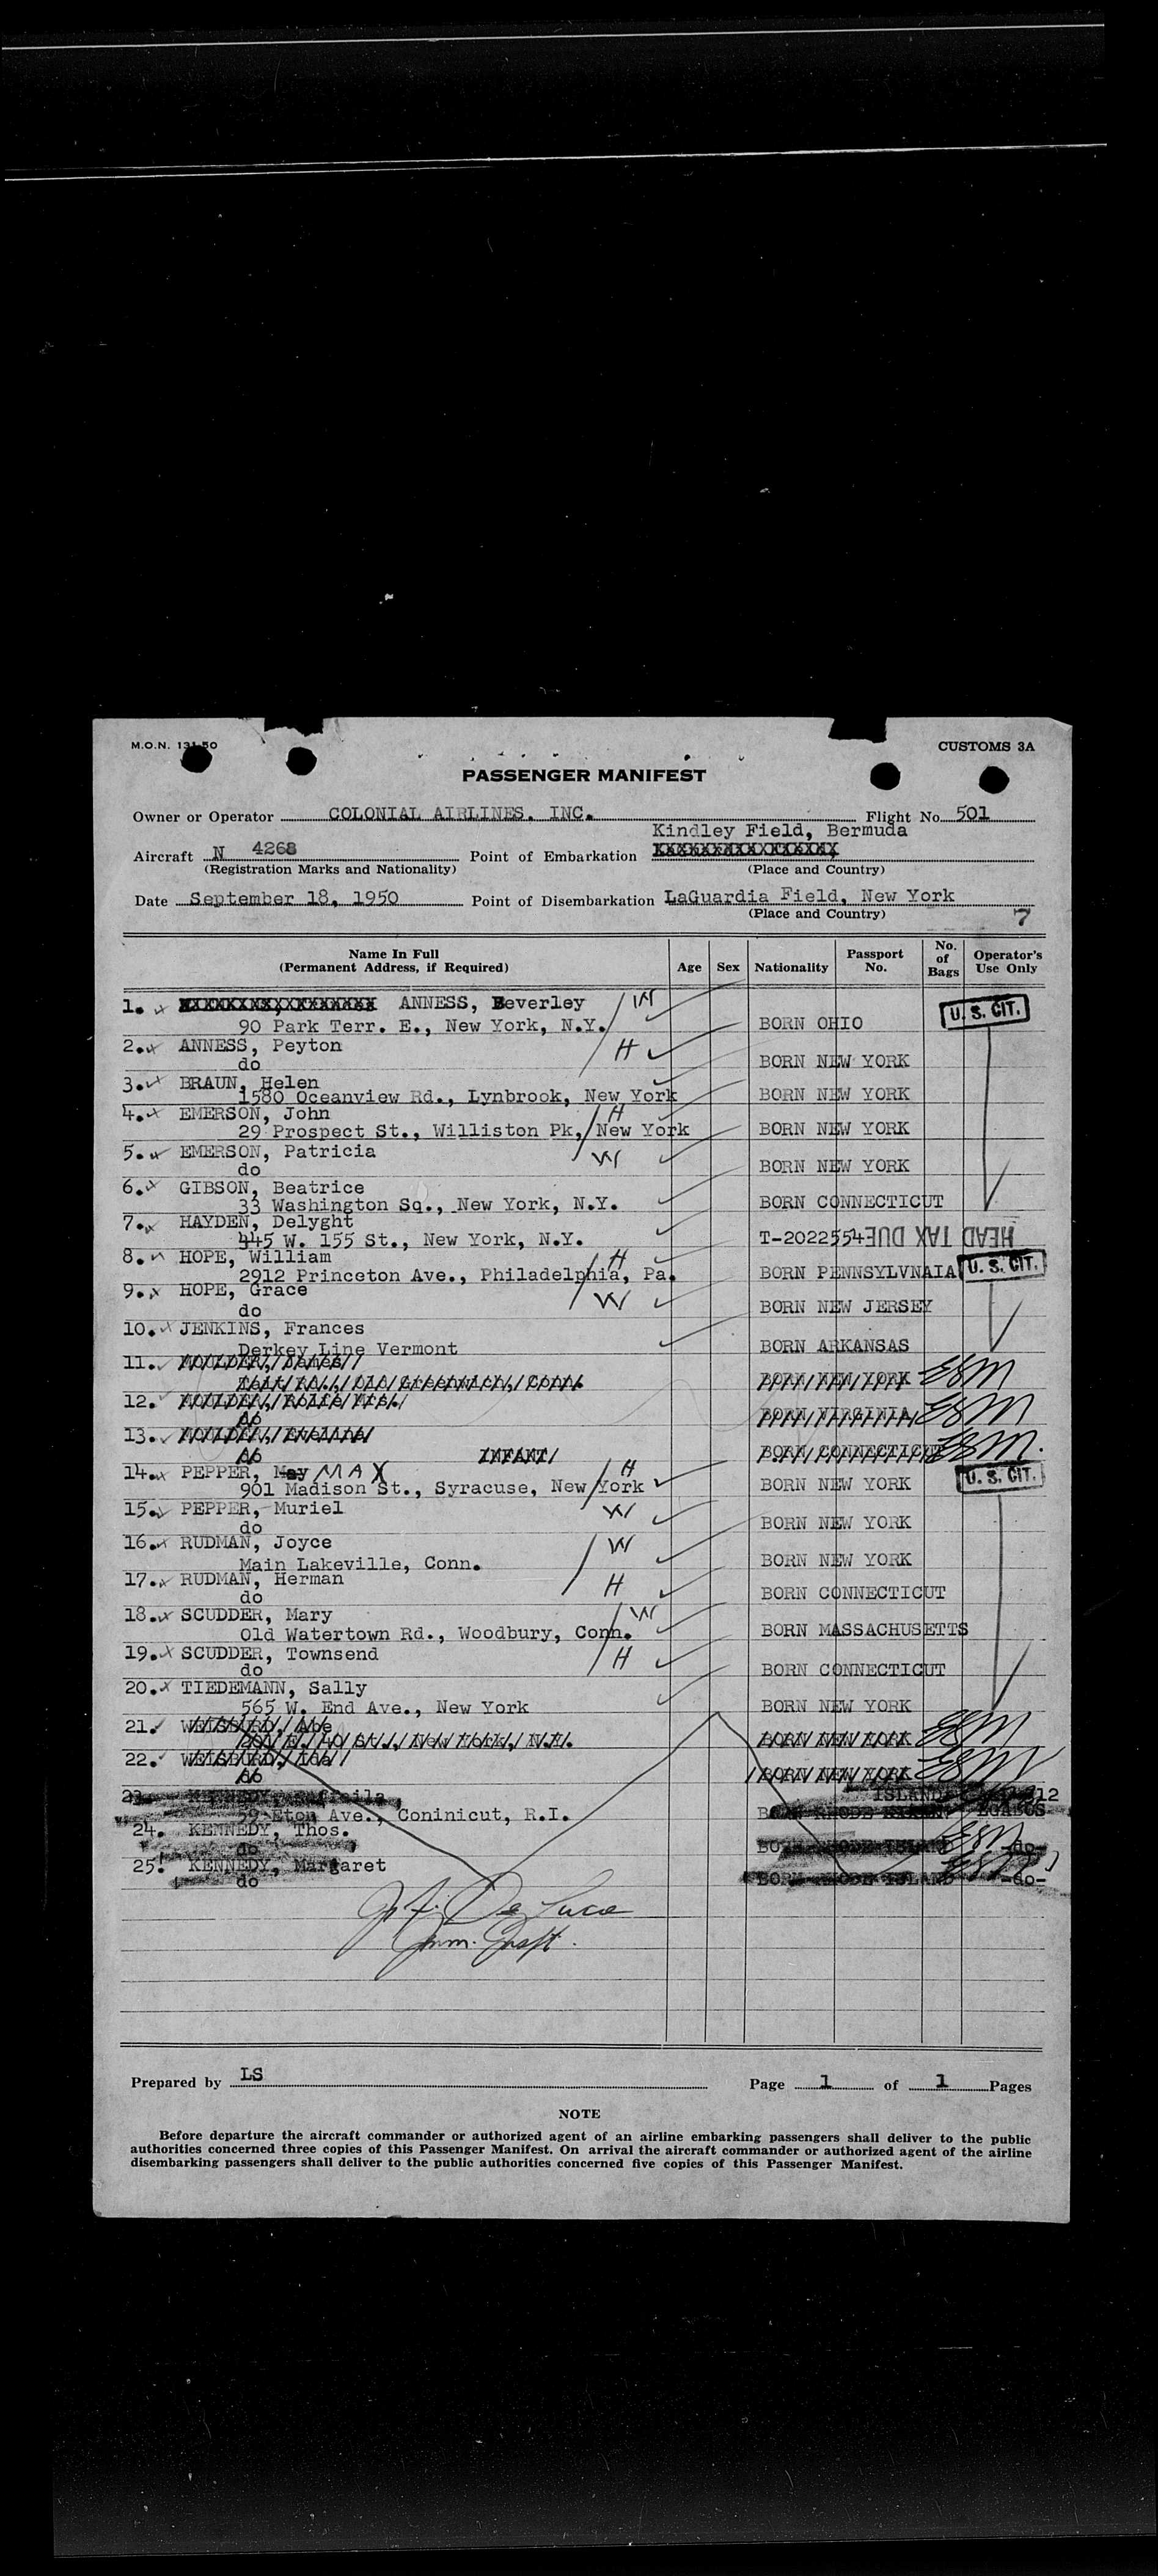 M.O.N. 131-50
CUSTOMS 3A
PASSENGER MANIFEST
Owner or Operator COLONIAL AIRLINES, INC. Flight No. 501
Kindley Field, Bermuda
Aircraft N 4268 Point of Embarkation
(Registration Marks and Nationality) (Place and Country)
Date September 18, 1950 Point of Disembarkation LaGuardia Field, New York
(Place and Country) 7
Name In Full (Permanent Address, if Required) Age Sex Nationality Passport No. No. of Bags Operator's Use Only
1. ANNESS, Beverley W U. S. CIT.
90 Park Terr. E., New York, N.Y. BORN OHIO
2. ANNESS, Peyton H
do BORN NEW YORK
3. BRAUN, Helen
1580 Oceanview Rd., Lynbrook, New York BORN NEW YORK
4. EMERSON, John H
29 Prospect St., Williston Pk, New York BORN NEW YORK
5. EMERSON, Patricia W
do BORN NEW YORK
6. GIBSON, Beatrice
33 Washington Sq., New York, N.Y. BORN CONNECTICUT
7. HAYDEN, Delyght
445 W. 155 St., New York, N.Y. T-2022554 HEAD TAX DUE
8. HOPE, William H U. S. CIT.
2912 Princeton Ave., Philadelphia, Pa. BORN PENNSYLVNAIA
9. HOPE, Grace W
do BORN NEW JERSEY
10. JENKINS, Frances
Derkey Line Vermont BORN ARKANSAS
11.
Old Greenwich, Conn. BORN NEW YORK ESM
12.
do BORN VIRGINIA ESM
13.
do INFANT BORN CONNECTICUT ESM.
14. PEPPER, May MAX H U. S. CIT.
901 Madison St., Syracuse, New York BORN NEW YORK
15. PEPPER, Muriel W
do BORN NEW YORK
16. RUDMAN, Joyce W
Main Lakeville, Conn. BORN NEW YORK
17. RUDMAN, Herman H
do BORN CONNECTICUT
18. SCUDDER, Mary W
Old Watertown Rd., Woodbury, Conn. BORN MASSACHUSETTS
19. SCUDDER, Townsend H
do BORN CONNECTICUT
20. TIEDEMANN, Sally
565 W. End Ave., New York BORN NEW YORK
21. WEISBURD, Abe
New York, N.Y. BORN NEW YORK ESM
22. WEISBURD, Ida
do BORN NEW YORK ESM
23. KENNEDY, ISLAND
59 Eton Ave., Coninicut, R.I. RHODE
24. KENNEDY, Thos.
do ISLAND ESM -do-
25. KENNEDY, Margaret
do BORN RHODE ISLAND -do-
De Luca
Imm. Inspt.
Prepared by LS Page 1 of 1 Pages
NOTE
Before departure the aircraft commander or authorized agent of an airline embarking passengers shall deliver to the public
authorities concerned three copies of this Passenger Manifest. On arrival the aircraft commander or authorized agent of the airline
disembarking passengers shall deliver to the public authorities concerned five copies of this Passenger Manifest.